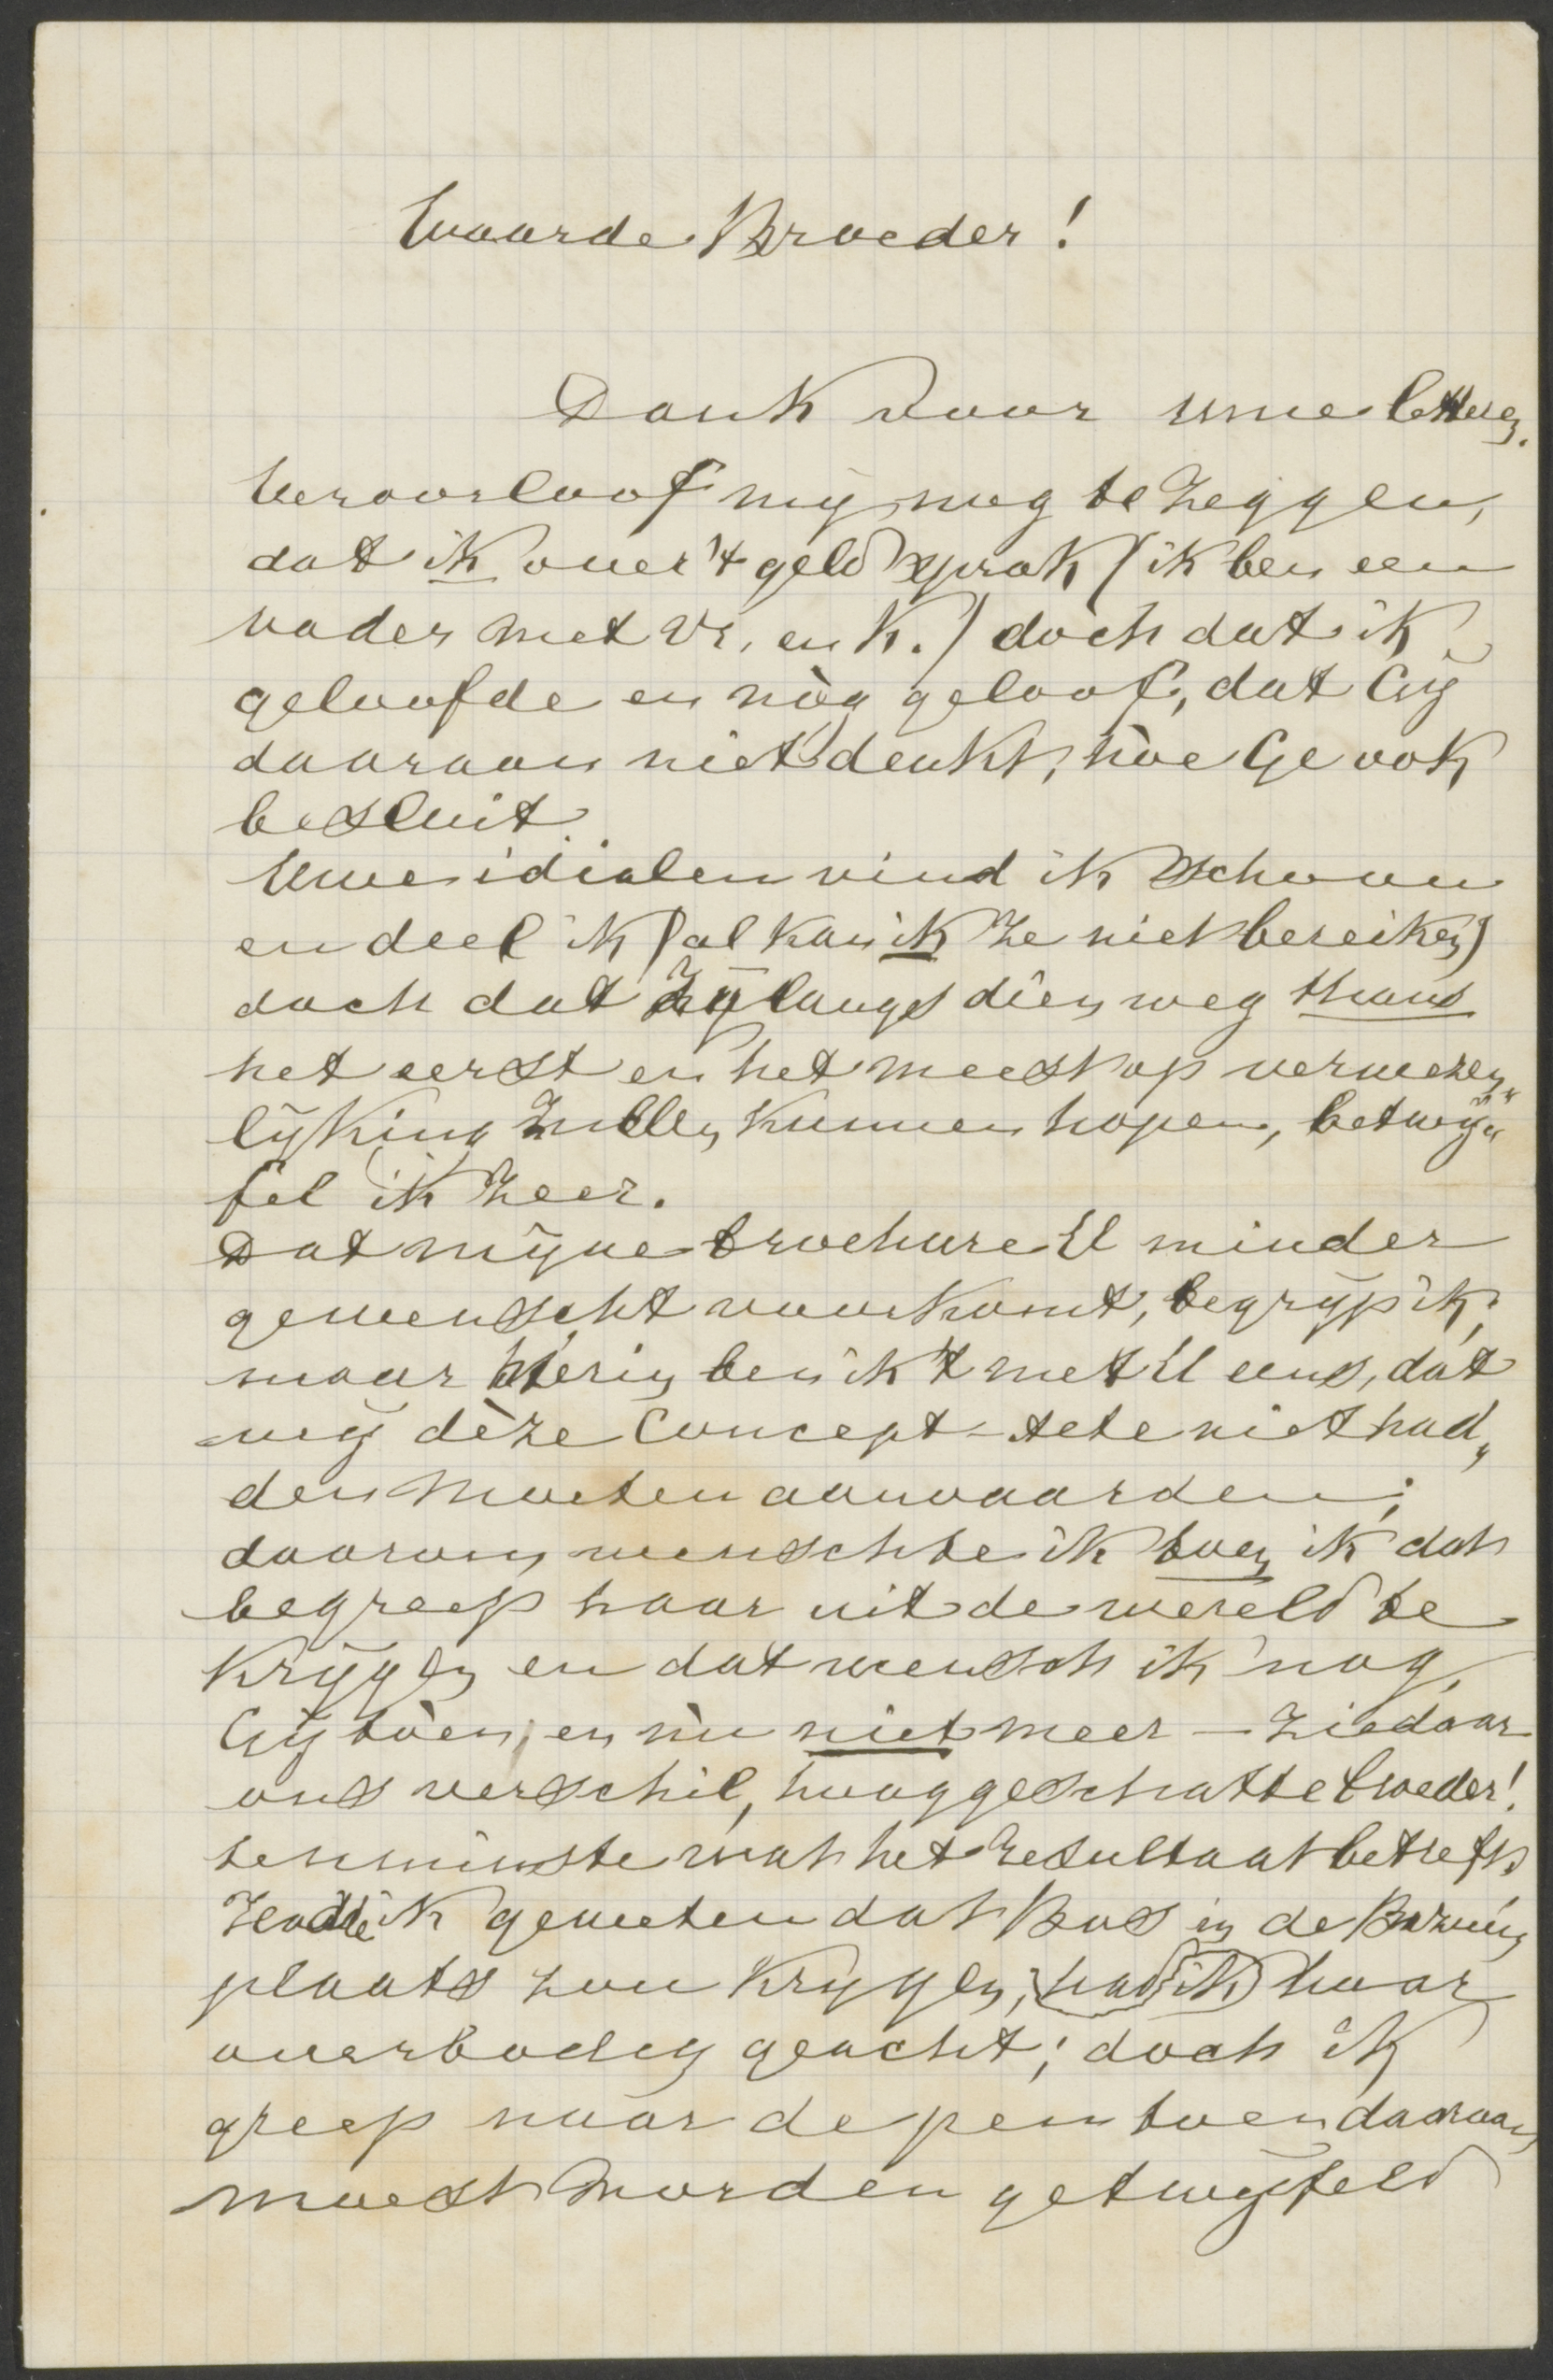 Waarde Broeder!
Dank voor uwe letteren.
Veroorloof mij nog te zeggen,
dat ik over 't geld sprak (ik ben een
vader met vr. en k.) doch dat ik
geloofde en nòg geloof, dat Gij
daaraan niet denkt, hòe Ge ook
besluit.
Uwe idialen vind ik schoon
en deel ik (al kan ik ze niet bereiken)
doch dat zij langs dien weg thans
het eerst en het meest op verwezen„
lijking zullen kunnen hopen, betwij„
fel ik zeer.
Dat mijne brochure U minder
gewenscht voorkomt, begrijp ik;
maar hierin ben ik 't met U eens, dat
wij dèze Concept-acte niet had„
den moeten aanvaarden;
daarom wenschte ik toen ik dat
begreep haar uit de wereld te
krijgen en dat wensch ik nog,
Gij tòen, en nù niet meer — ziedaar
ons verschil, hooggeschatte broeder!
tenminste wat het resultaat betreft.
Hadde ik geweten dat Bos in de Bazuin
plaats zou krijgen, had ik haar
overbodig geacht; doch ik
greep naar de pen toen daaraan
moest worden getwijfeld